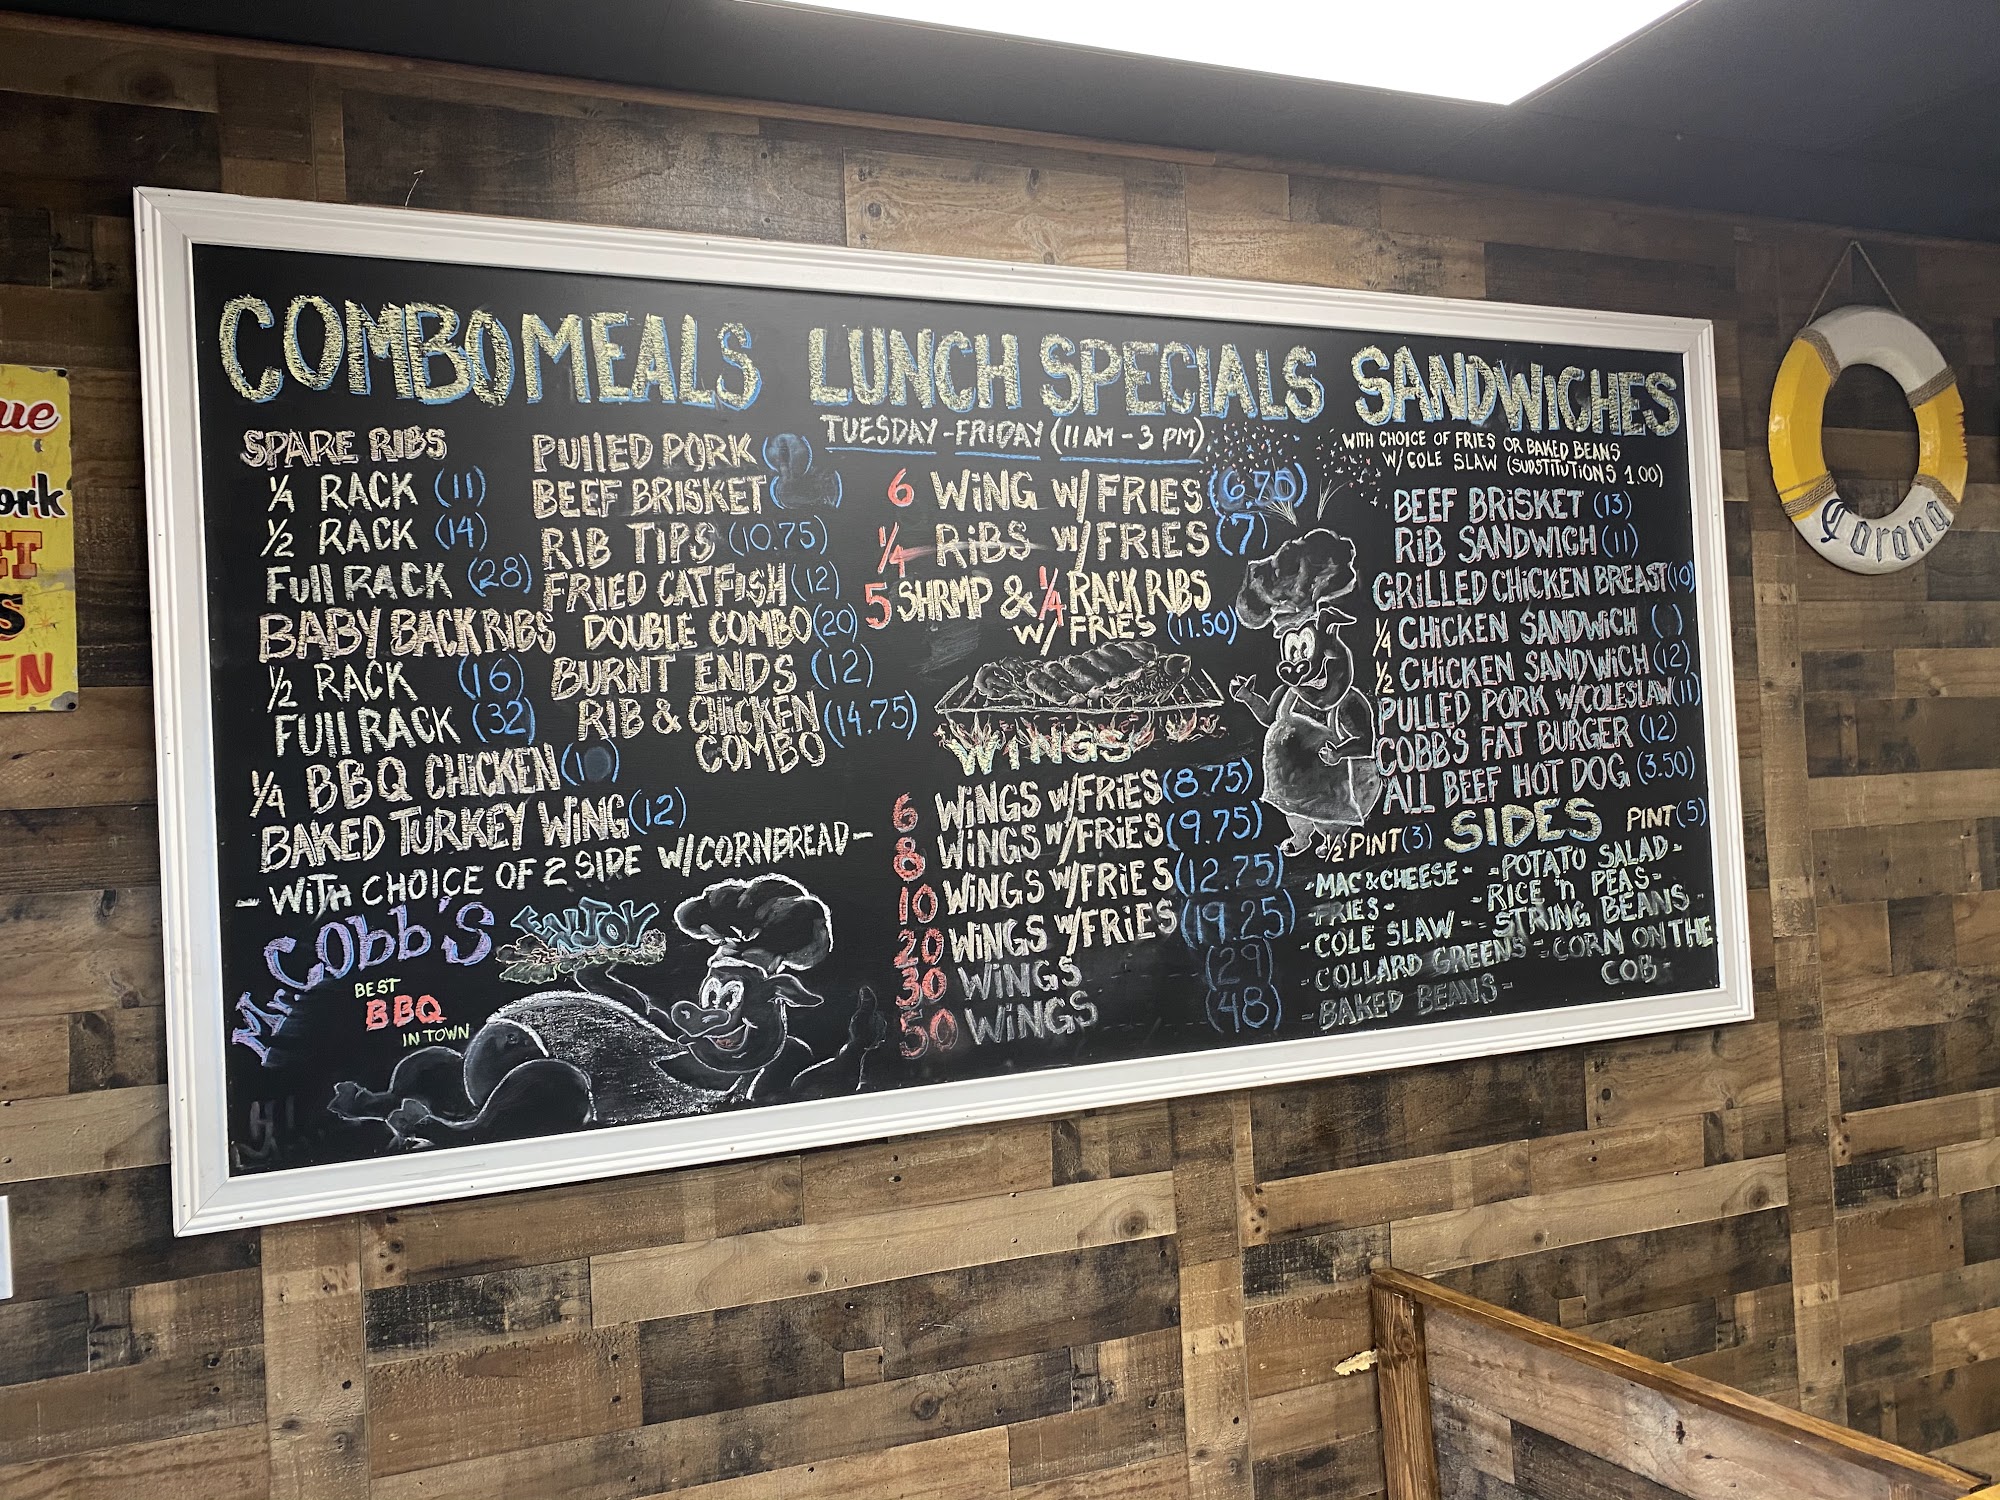 COMBO MEALS
SPARE RIBS
1/4 RACK (11)
1/2 RACK (14)
FUll RACK (28)
BABY BACK RIBS
1/2 RACK (16)
FUll RACK (32)
1/4 BBQ CHiCKEN
BAKED TURKEY WiNG (12)
- WITH CHOICE OF 2 SIDE W/CORNBREAD -
PUllED PORK
BEEF BRISKET
RIB TIPS (10.75)
FRIED CATFISH (12)
DOUBLE COMBO (20)
BURNT ENDS (12)
RIB & CHICKEN (14.75)
COMBO
Mr. Cobb's
ENJOY
BEST
BBQ
IN TOWN
LUNCH SPECIALS
TUESDAY - FRIDAY (11 AM - 3 PM)
6 WiNG W/ FRIES (6.75)
1/4 RiBS W/ FRIES (7)
5 SHRMP & 1/4 RACK RIBS
W/ FRIES (11.50)
WINGS
6 WiNGS W/FRiES (8.75)
8 WiNGS W/FRiES (9.75)
10 WiNGS W/FRiES (12.75)
20 WiNGS W/FRiES (19.25)
30 WiNGS (29)
50 WiNGS (48)
SANDWiCHES
WITH CHOICE OF FRIES OR BAKED BEANS
W/ COLE SLAW (SUBSTITUTIONS 1.00)
BEEF BRISKET (13)
RiB SANDWiCH (11)
GRiLLED CHiCKEN BREAST (10)
1/4 CHiCKEN SANDWiCH
1/2 CHiCKEN SANDWiCH (12)
PULLED PORK W/COLESLAW (11)
COBB'S FAT BURGER (12)
ALL BEEF HOT DOG (3.50)
1/2 PINT (3) SIDES PINT (5)
- MAC & CHEESE - - POTATO SALAD -
- FRIES - - RICE 'n PEAS -
- COLE SLAW - - STRING BEANS -
- COLLARD GREENS - - CORN ON THE
COB -
- BAKED BEANS -
Corona
ue
ork
ET
S
EN